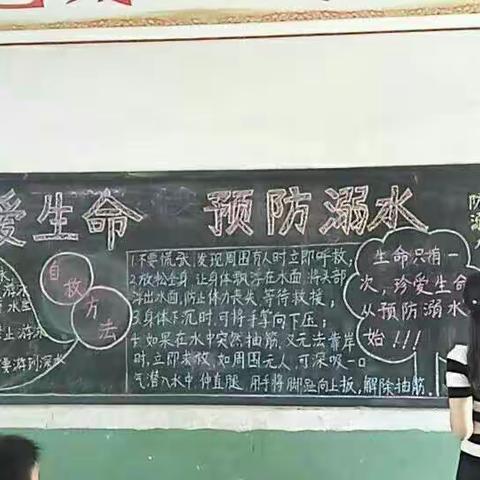 爱生命 预防溺水
游泳
要游到深水
自救
方法
1.不要慌张,发现周围有人时立即呼救;
2.放松全身,让身体飘浮在水面,将头部
浮出水面,防止体力丧失,等待救援;
3.身体下沉时,可将手掌向下压;
4.如果在水中突然抽筋,又无法靠岸
时,立即求救,如周围无人,可深吸一口
气潜入水中,伸直腿,用手将脚趾向上扳,解除抽筋。
生命只有一
次,珍爱生命
从预防溺水
始!!!
防
溺